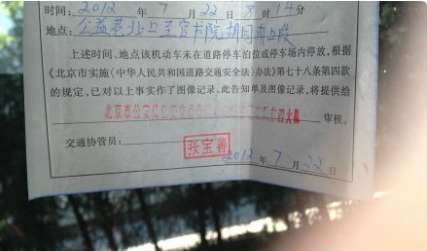 时间：2012年7月22日8时14分
地点：公益巷北口
上述时间、地点该机动车未在道路停车泊位或停车场内停放，根据
《北京市实施〈中华人民共和国道路交通安全法〉办法》第七十八条第四款
的规定，已对以上事实作了图像记录，此告知单及图像记录，将提供给
北京市公安局公安 审核。
交通协管员：
张宝善
2012年7月22日